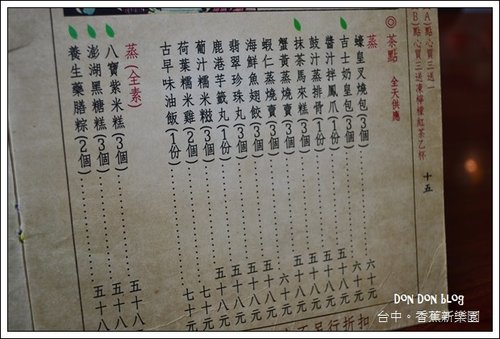 A)點心買三送一
B)點心買三送凍檸檬紅茶乙杯
十五
◎茶點 全天供應
蒸
蠔皇叉燒包(3個)……六十元
吉士奶皇包(3個)……五十八元
醬汁拌鳳爪(1份)……五十八元
豉汁蒸排骨(1份)……五十八元
抹茶馬來糕(3個)……五十八元
蟹黃蒸燒賣(3個)……六十元
蝦仁蒸燒賣(3個)……五十八元
海鮮魚翅餃(3個)……五十八元
翡翠珍珠丸(3個)……五十八元
鹿港芋籤丸(1份)……五十八元
葡汁糯米糍(3個)……五十八元
荷葉糯米雞(2個)……七十元
古早味油飯(1份)……
蒸(全素)
八寶紫米糕(3個)……五十八
澎湖黑糖糕(3個)……五十八
養生藥膳粽(2個)……
行折扣
DON DON BLOG
台中。香蕉新樂園